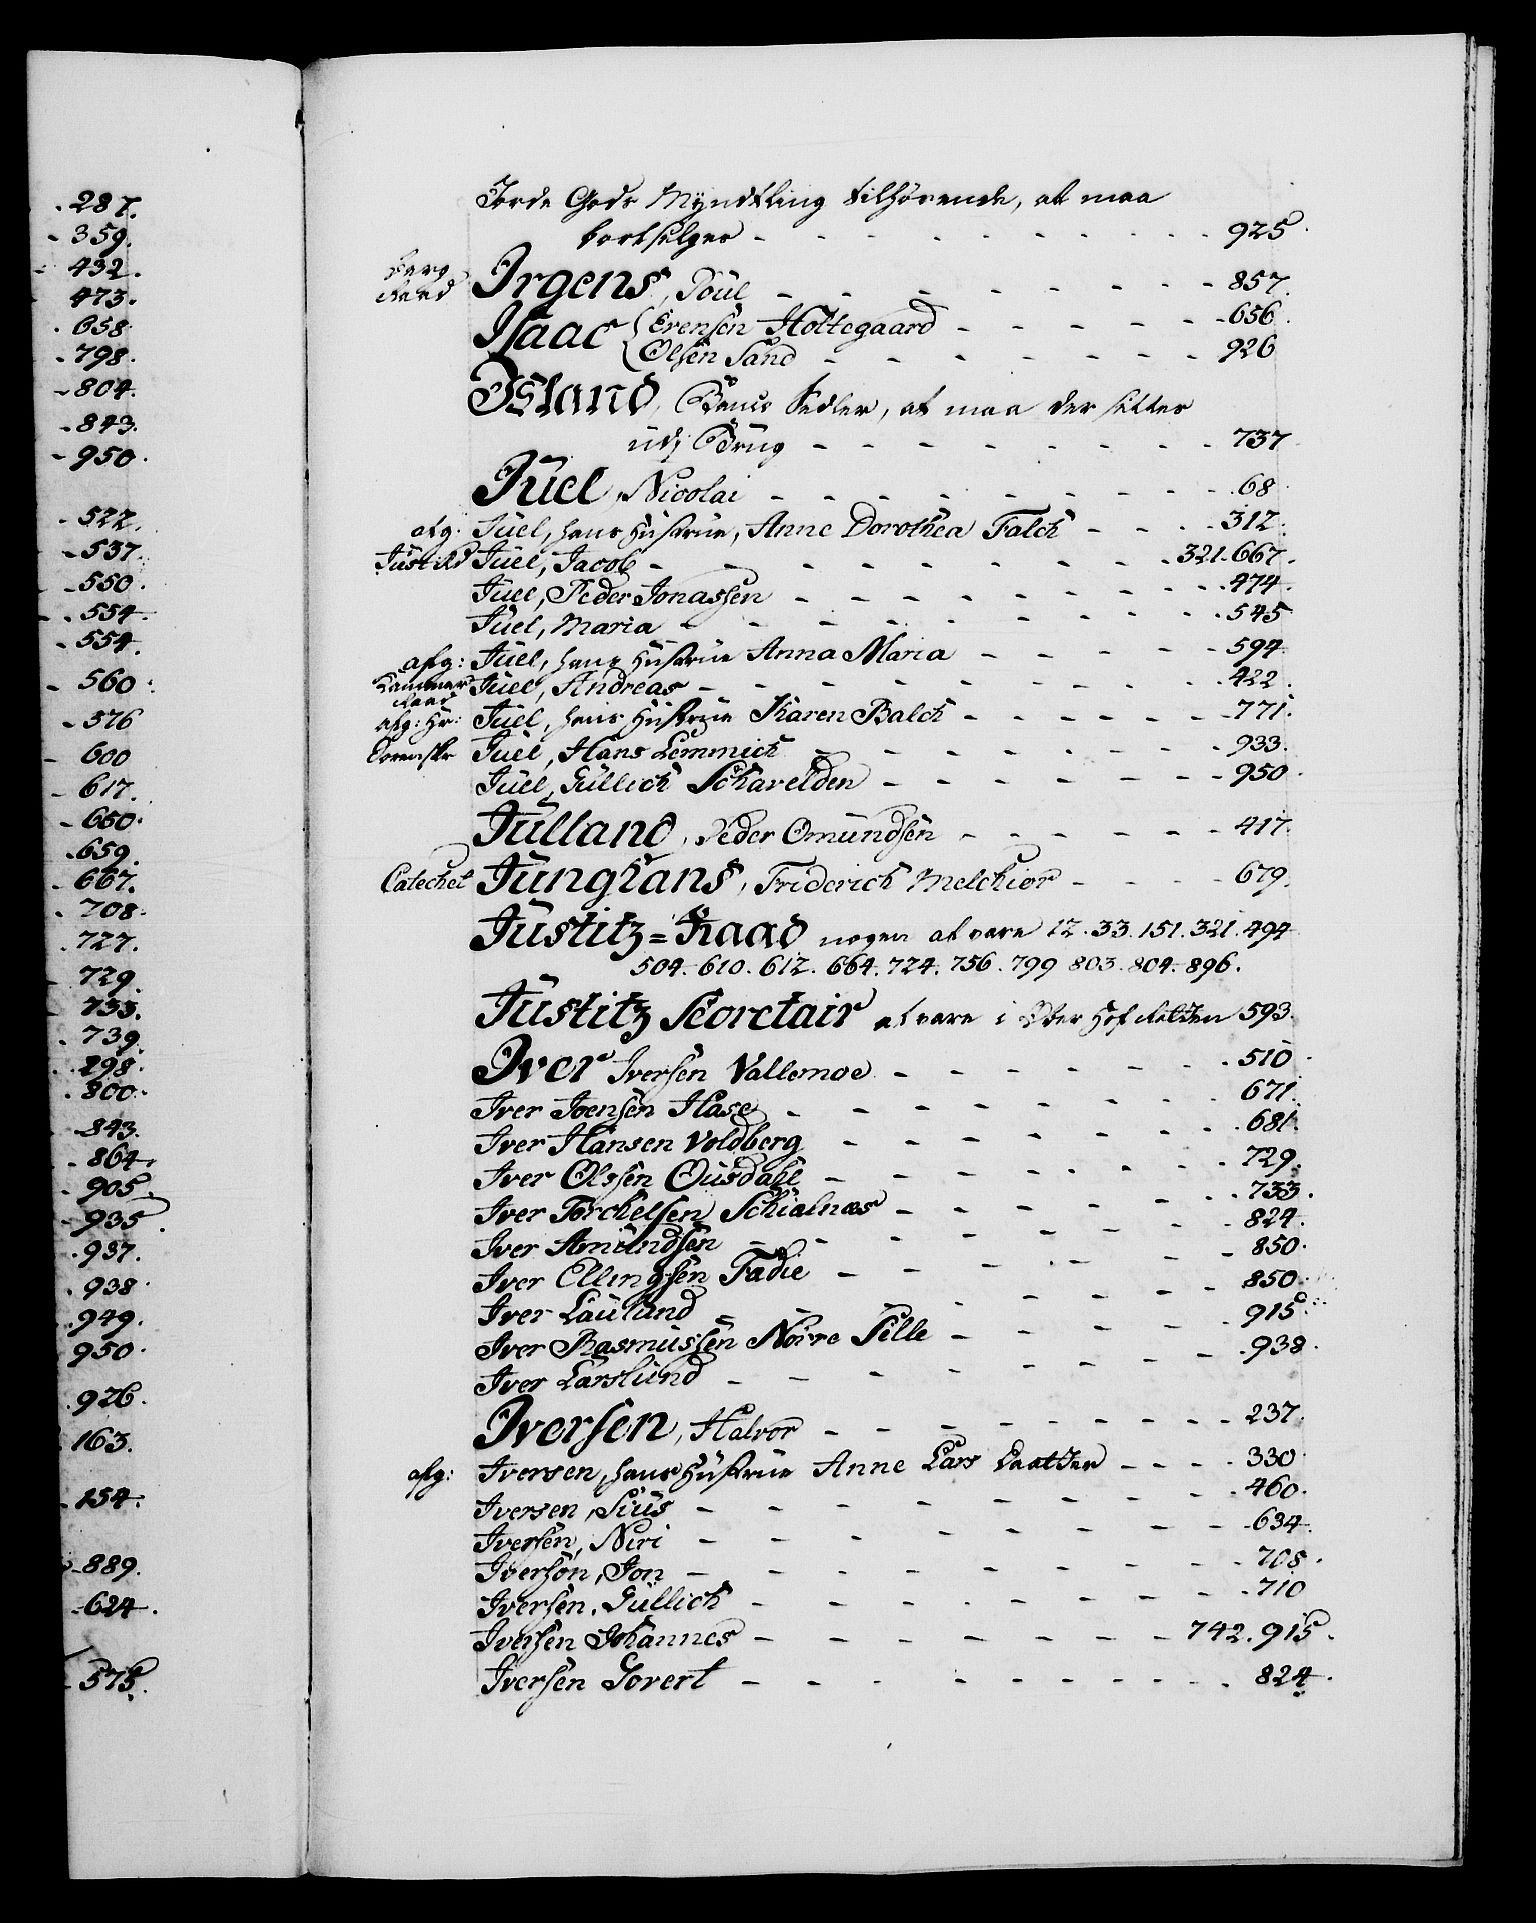 287.
359.
432.
473.
658
798.
804.
843.
950.
522.
537.
550.
554.
554.
560.
576
600
617.
650.
659.
667.
708.
727.
729.
733.
739.
798.
800.
843.
864.
905.
935.
937.
938.
949.
950.
926.
163.
154.
889.
624.
575.
Jorde Gods Myndtling tilhørende, at maa
bortselges - - - 925
Berg
Raad Irgens, Poul - - - 857.
Isaac { Erensen Holtegaard - - - 656.
{ Olsen Sand - - - 926
Island, Banco Sedler, at maa der settes
udi Brug - - - 737
Jüel, Nicolai - - - 68
afg: Juel, hans Hustrue, Anne Dorothea Falch - - - 312.
Just: Rd Juel, Jacob - - - 321. 667.
Juel, Peder Jonassen - - - 474.
Juel, Maria - - - 545
afg: Juel, hans Hustrue Anna Maria - - - 594
Kammer
Raad Juel, Andreas - - - 422
afg: Hr: Juel, hans Hustrue Karen Balch - - - 771.
Sorenskr Juel, Hans Lemmich - - - 933.
Juel, Gullich Scharelden - - - 950
Jülland, Peder Omundsen - - - 417.
Catechet Junghans, Friderich Melchior - - - 679.
Justitz=Raad nogen at være 12. 33. 151. 321. 494
504. 610. 612. 664. 724. 756. 799 803. 804. 896.
Justitz Secretair at være i Over Hof Retten 593.
Iver Iversen Vallemoe - - - 510
Iver Joensen Hase - - - 671.
Iver Hansen Voldberg - - - 681.
Iver Olssen Ousdahl - - - 729.
Iver Torchelsen Schialnæs - - - 733.
Iver Amundsen - - - 824.
Iver Ellingsen Fadie - - - 850.
Iver Lauland - - - 850.
Iver Rasmussen Noire Pille - - - 915.
Iver Larslund - - - 938.
Iversen, Halvor - - - 237.
afg: Iversen, hans Hustrue Anne Lars Daatter - - - 330
Iversen, Siüs - - - 460.
Iversen, Niri - - - 634.
Iversøn, Jon - - - 708.
Iversen, Gullich - - - 710
Iversen Johannes - - - 742. 915.
Iversen Govert - - - 824.